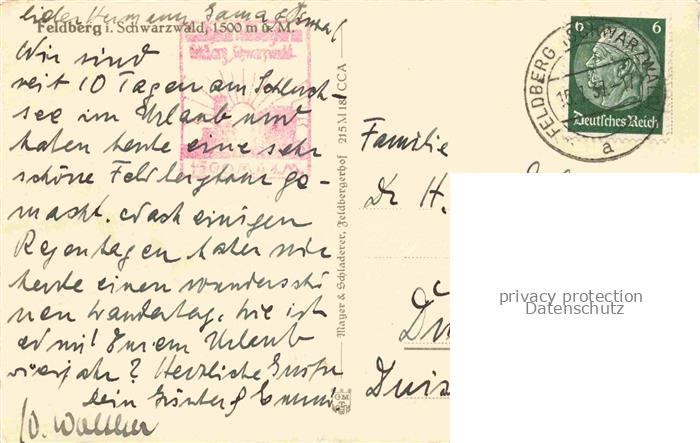 Lieber Hermann,
Feldberg i. Schwarzwald, 1500 m ü. M.
Wir sind
seit 10 Tagen am Schluch-
see im Urlaub und
haben heute eine sehr
schöne Feldbergtour ge-
macht. Nach einigen
Regentagen haben wir
heute einen wunderschö
nen Wandertag. Wie ist
es mit Eurem Urlaub
? Herzliche Grüße
Dein
W. Walther
Feldberg, Schwarzwald
1500 m ü. M.
Mayer & Schladerer, Feldbergerhof 215 M 18 CCA
Familie
Dr H.
Du
Duis
FELDBERG (SCHWARZWALD)
a
6 6
Deutsches Reich
privacy protection
Datenschutz